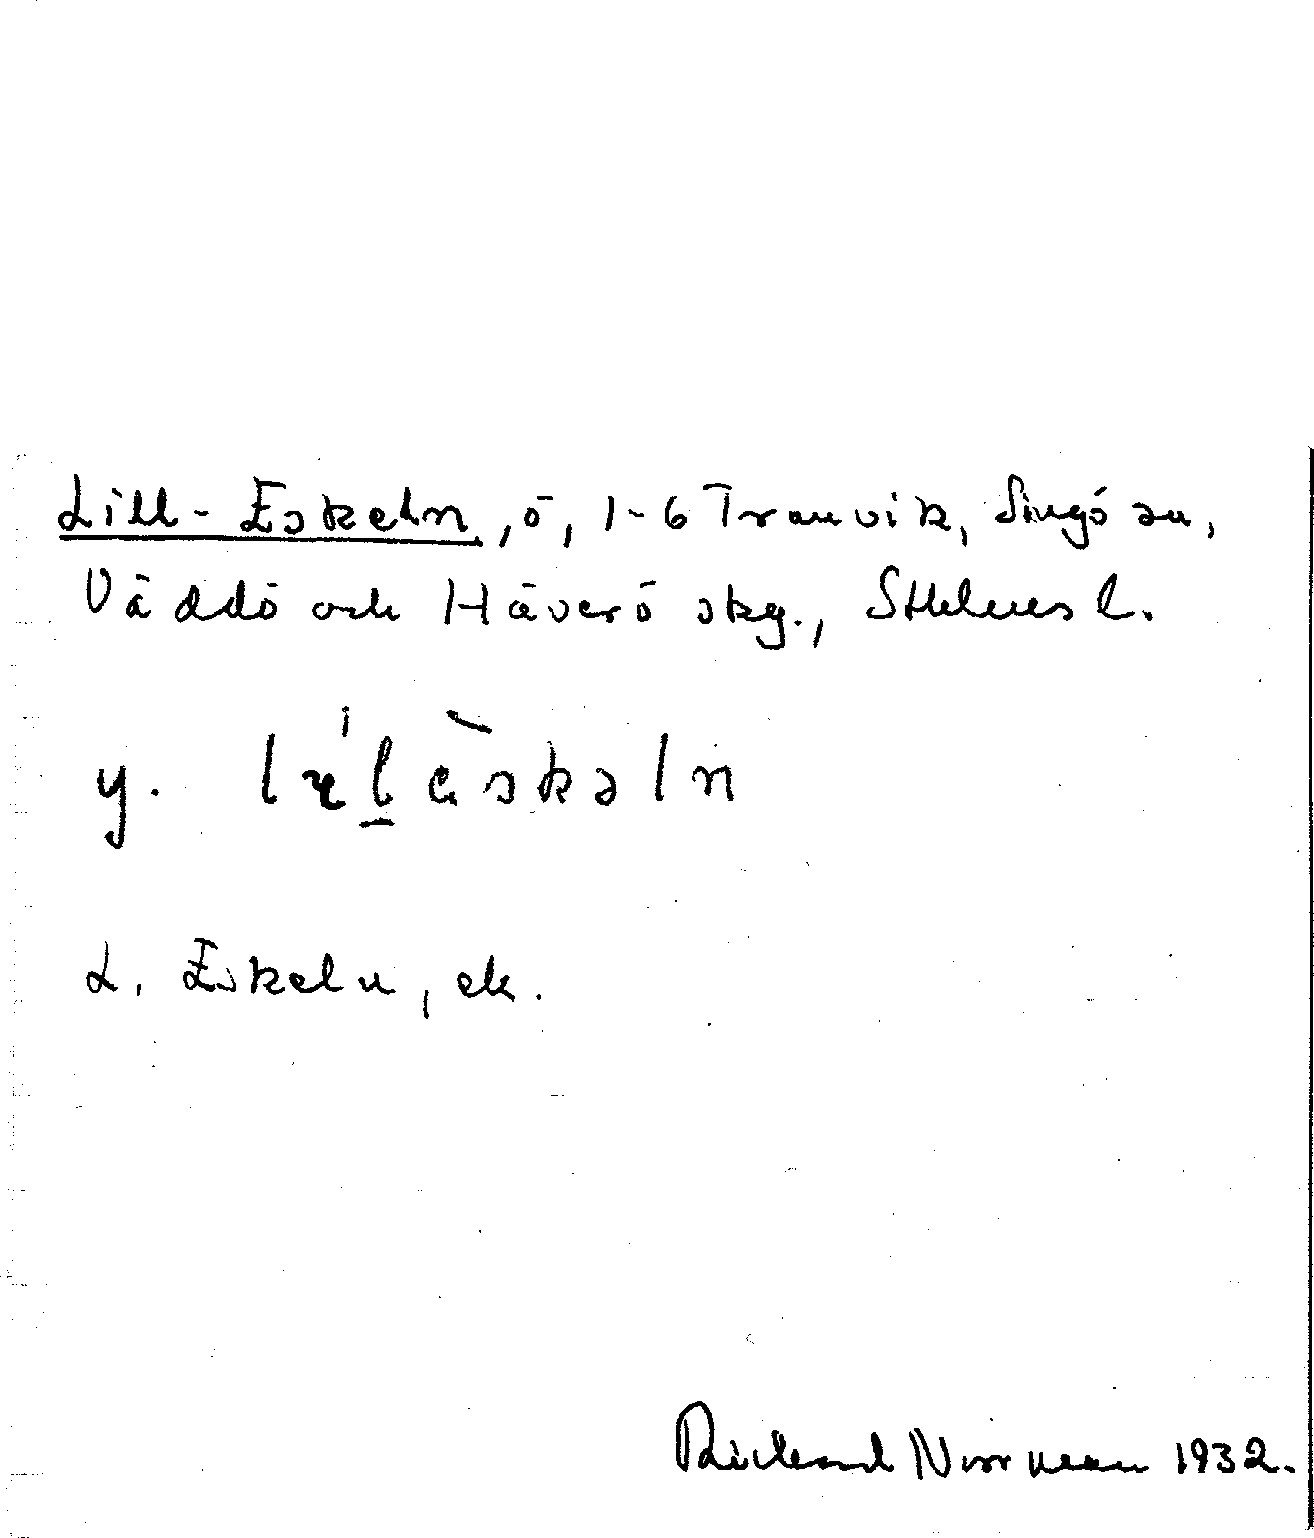 Lill-Eskeln, ö, 1-6 Tranvik, Singö sn,
Väddö och Häverö skg., Sthlms l.
y.
L. Eskeln, ek.
Rickard Norrman 1932.